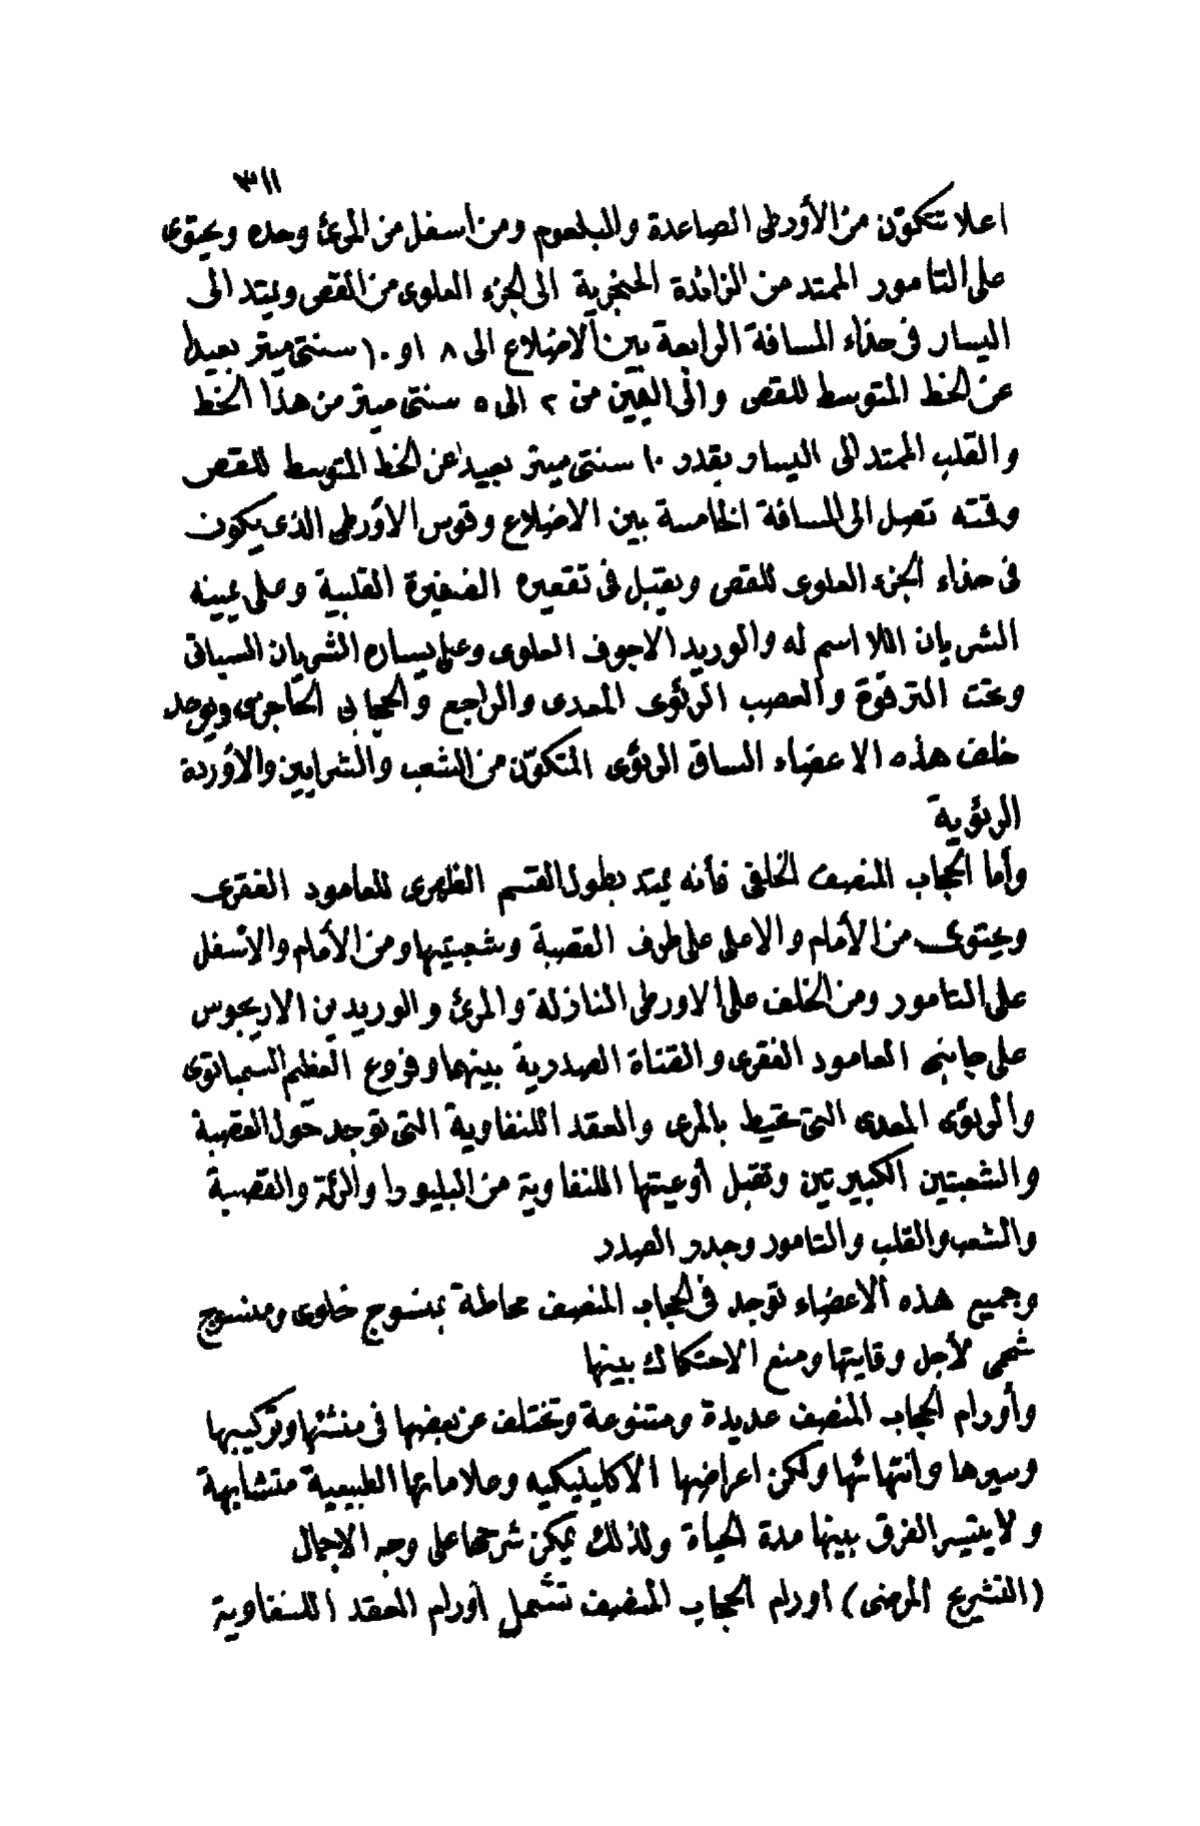 ٣١١
اعلا تتكوّن من الأورطى الصاعدة والبلعوم ومن اسفل من المرئ وحده ويحتوى
على التامور الممتد من الزائدة الخنجرية الى الجزء العلوى من القص ويمتد الى
اليسار فى حذاء المسافة الرابعة بين الاضلاع الى ٨ او ١٠ سنتى ميتر بعيدا
عن الخط المتوسط للقص والى اليمين من ٢ الى ٥ سنتى ميتر من هذا الخط
والقلب الممتد الى اليسار بقدر ١٠ سنتى ميتر بعيدا عن الخط المتوسط للقص
وقمته تصل الى المسافة الخامسة بين الاضلاع وقوس الاورطى الذى يكون
فى حذاء الجزء العلوى للقص ويقبل فى تقعيره الضفيرة القلبية وعلى يمينه
الشريان اللا اسم له والوريد الاجوف العلوى وعلى يساره الشريان السباتى
وتحت الترقوة والعصب الرئوى المعدى والراجع والحجابى الحاجزى ويوجد
خلف هذه الاعضاء الساق الرئوى المتكوّن من الشعب والشرايين والأوردة
الرئوية
وأما الحجاب المنصف الخلفى فأنه يمتد بطول القسم الظهرى للعامود الفقرى
ويحتوى من الأمام والاعلى على طرف القصبة وشعبتيها ومن الأمام والاسفل
على التامور ومن الخلف على الاورطى النازلة والمرئ والوريدين الازيجوس
على جانبى العامود الفقرى والقناة الصدرية بينهما وفروع العظيم السمباتوى
والرئوى المعدى التى تحيط بالمرى والعقد اللنفاوية التى توجد حول القصبة
والشعبتين الكبيرتين وتقبل أوعيتها اللنفاوية من البليورا والرئة والقصبة
والشعب والقلب والتامور وجدر الصدر
وجميع هذه الاعضاء توجد فى الحجاب المنصف محاطة بمنسوج خلوى ومنسوج
شحمى لأجل وقايتها ومنع الاحتكاك بينها
وأورام الحجاب المنصف عديدة ومتنوعة وتختلف عن بعضها فى منشئها وتركيبها
وسيرها وانتهائها ولكن اعراضها الاكلينيكيه وعلاماتها الطبيعية متشابهة
ولا يتيسر الفرق بينها مدة الحياة ولذلك يمكن شرحها على وجه الاجمال
(التشريح المرضى) اورام الحجاب المنصف تشمل اورام العقد اللنفاوية